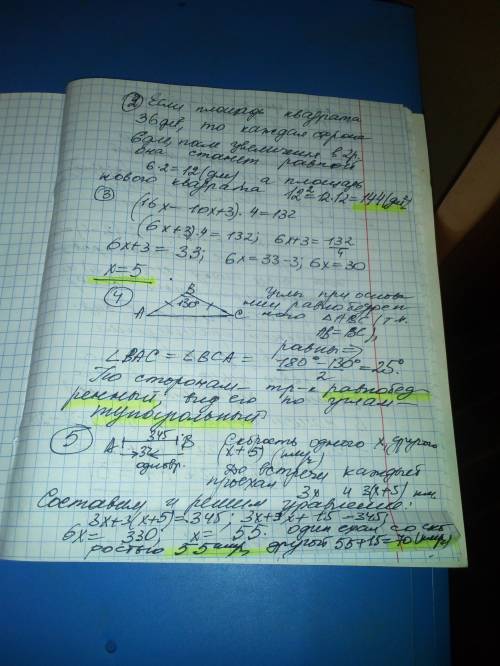 ② Если площадь квадрата
36 дм², то каждая сторона
6 дм, при увеличении в 2 р.
она станет равной
6·2=12 (дм), а площадь
нового квадрата 12²=12·12=144(дм²)
③ (16x-10x+3)·4=132
(6x+3)·4=132; 6x+3=132/4
6x+3=33; 6x=33-3; 6x=30
x=5
④ B
130°
A C
Углы при основа-
нии равнобедрен-
ного △ABC (т.к.
AB=BC),
равны ⇒
∠BAC=∠BCA=(180°-130°)/2=25°
По сторонам- тр-к равнобед
ренный, вид его по углам-
тупоугольный
⑤ A 345 B
3ч
одновр.
Скорость одного x, другого
(x+5) (км/ч)
До встречи каждый
проехал
3x и 3(x+5) км.
Составим и решим уравнение:
3x+3(x+5)=345; 3x+3x+15=345;
6x=330; x=55. один ехал со ско
ростью 55 км/ч, другой 55+15=70(км/ч)